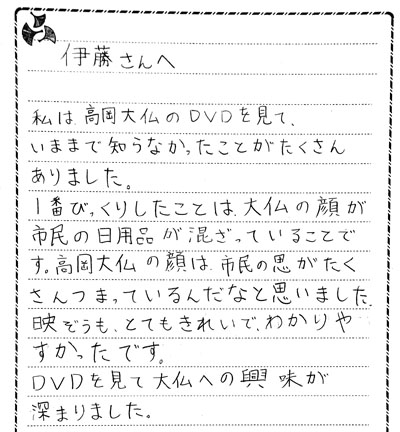 伊藤さんへ
私は、高岡大仏のDVDを見て、
いままで知うなかったことがたくさん
ありました。
1番びっくりしたことは、大仏の顔が
市民の日用品が混ざっていることで
す。高岡大仏の顔は、市民の思がたく
さんつまっているんだなと思いました。
映ぞうも、とてもきれいで、わかりや
すかったです。
DVDを見て大仏への興味が
深まりました。